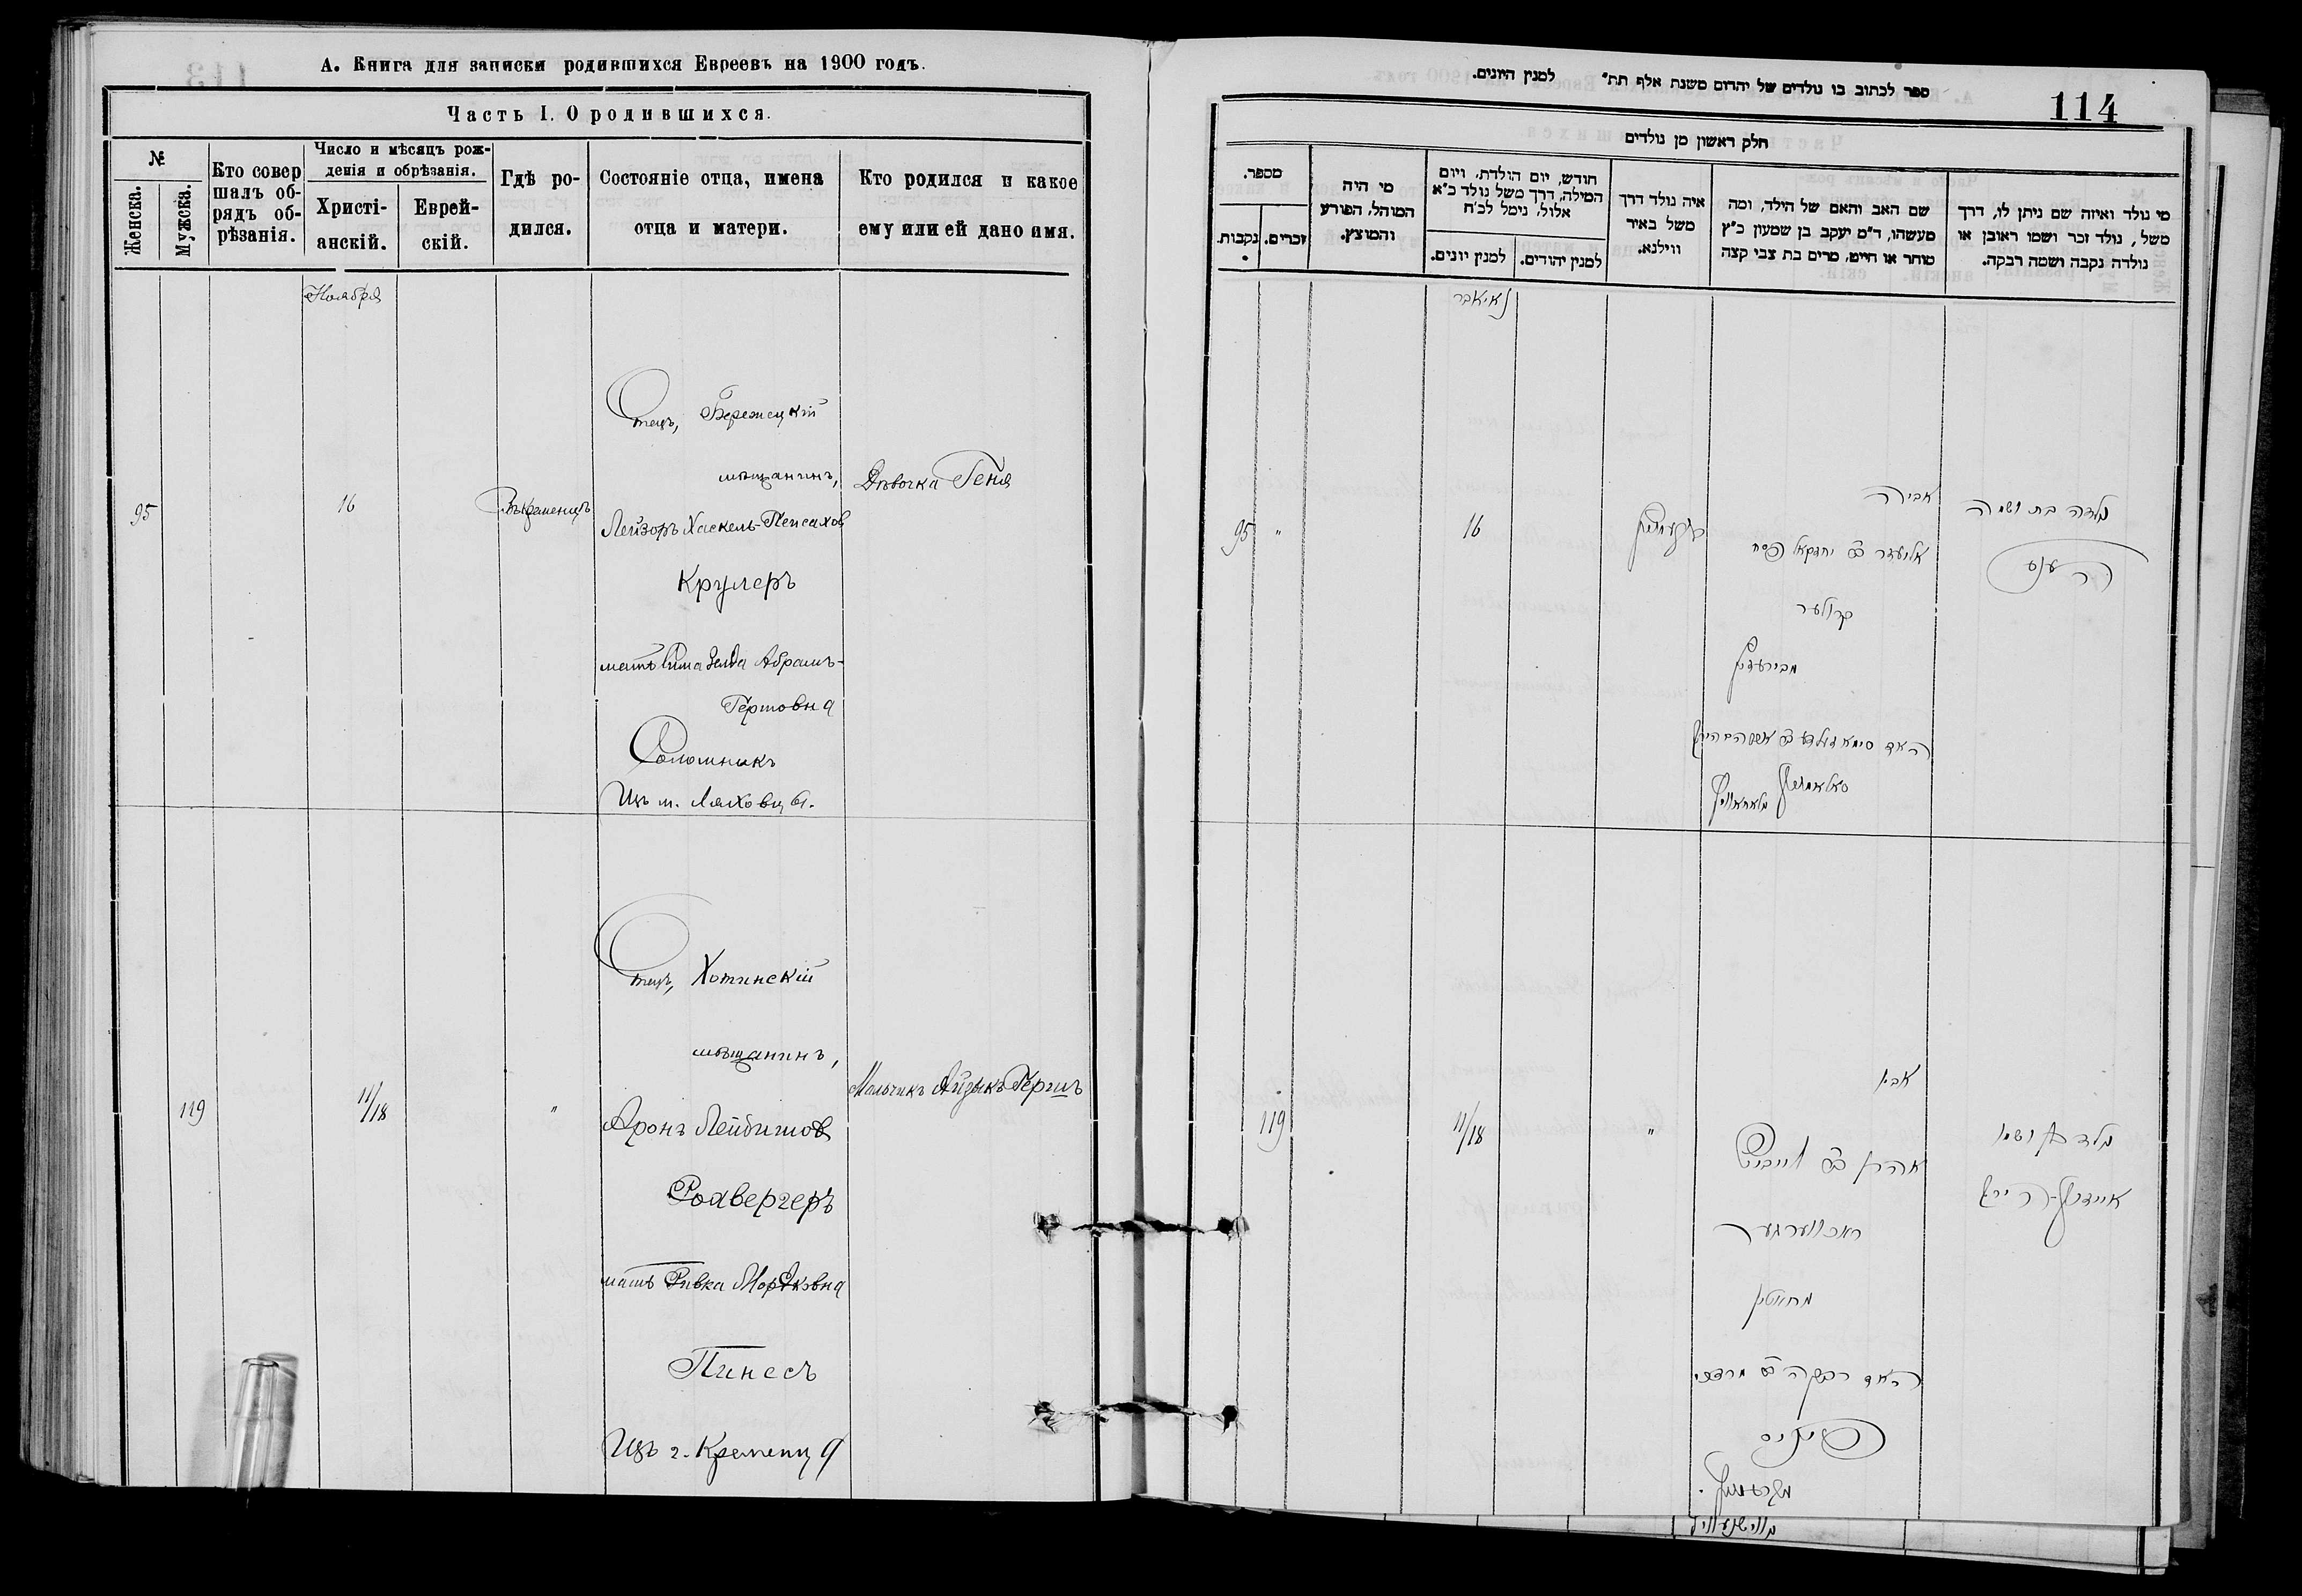 А. Книга для записки родившихся Евреевъ на 1900 годъ.
Часть I. О родившихся.
№
Женска.
Мужска.
Кто совер
шалъ об-
рядъ об-
рѣзанія.
Число и мѣсяцъ рож-
денія и обрѣзанія.
Христі-
анскій.
Еврей-
скій.
Гдѣ ро-
дился.
Состояніе отца, имена
отца и матери.
Кто родился и какое
ему или ей дано имя.
Ноября
95
16
Въ Кременцѣ
Отецъ, Бережецкій
мѣщанинъ,
Лейзоръ Хаскель-Пейсахов
Крулеръ
мать Сима Зелда Абрамъ-
Гершовна
Соломникъ
Изъ м. Ляховцы.
Дѣвочка Геня
119
11/18
"
Отецъ, Хотинскій
мѣщанинъ,
Аронъ Лейбишов
Роавергеръ
мать Ривка Мордковна
Пинесъ
Изъ г. Кременца
Мальчикъ Айзыкъ Гершъ
ספר לכתוב בו נולדים של יהודים משנת אלף תת״ למנין היונים.
114
חלק ראשון מן נולדים
מספר.
נקבות.
זכרים.
מי היה
המוהל, הפורע
והמוצץ.
חודש, יום הולדת, ויום
המילה, דרך משל נולד כ״א
אלול, נימל לכ״ח
למנין יונים.
למנין יהודים.
איה נולד דרך
משל באיר
ווילנא.
שם האב והאם של הילד, ומה
מעשהו, ד״מ יעקב בן שמעון כ״ץ
סוחר או חייט, מרים בת צבי קצה
מי נולד ואיזה שם ניתן לו, דרך
משל, נולד זכר ושמו ראובן או
נולדה נקבה ושמה רבקה.
נאיאבר
95
"
16
אביה
אליעזר ב״ר יחזקאל פסח
קרולער
נולדה בת ושמה
הענע
119
11/18
"
אביו
אהרן ב״ר לייביש
ראאווערגער
מחאטין
האם רבקה ב״ר מרדכי
פינס
נולד בן ושמו
אייזיק-הירש